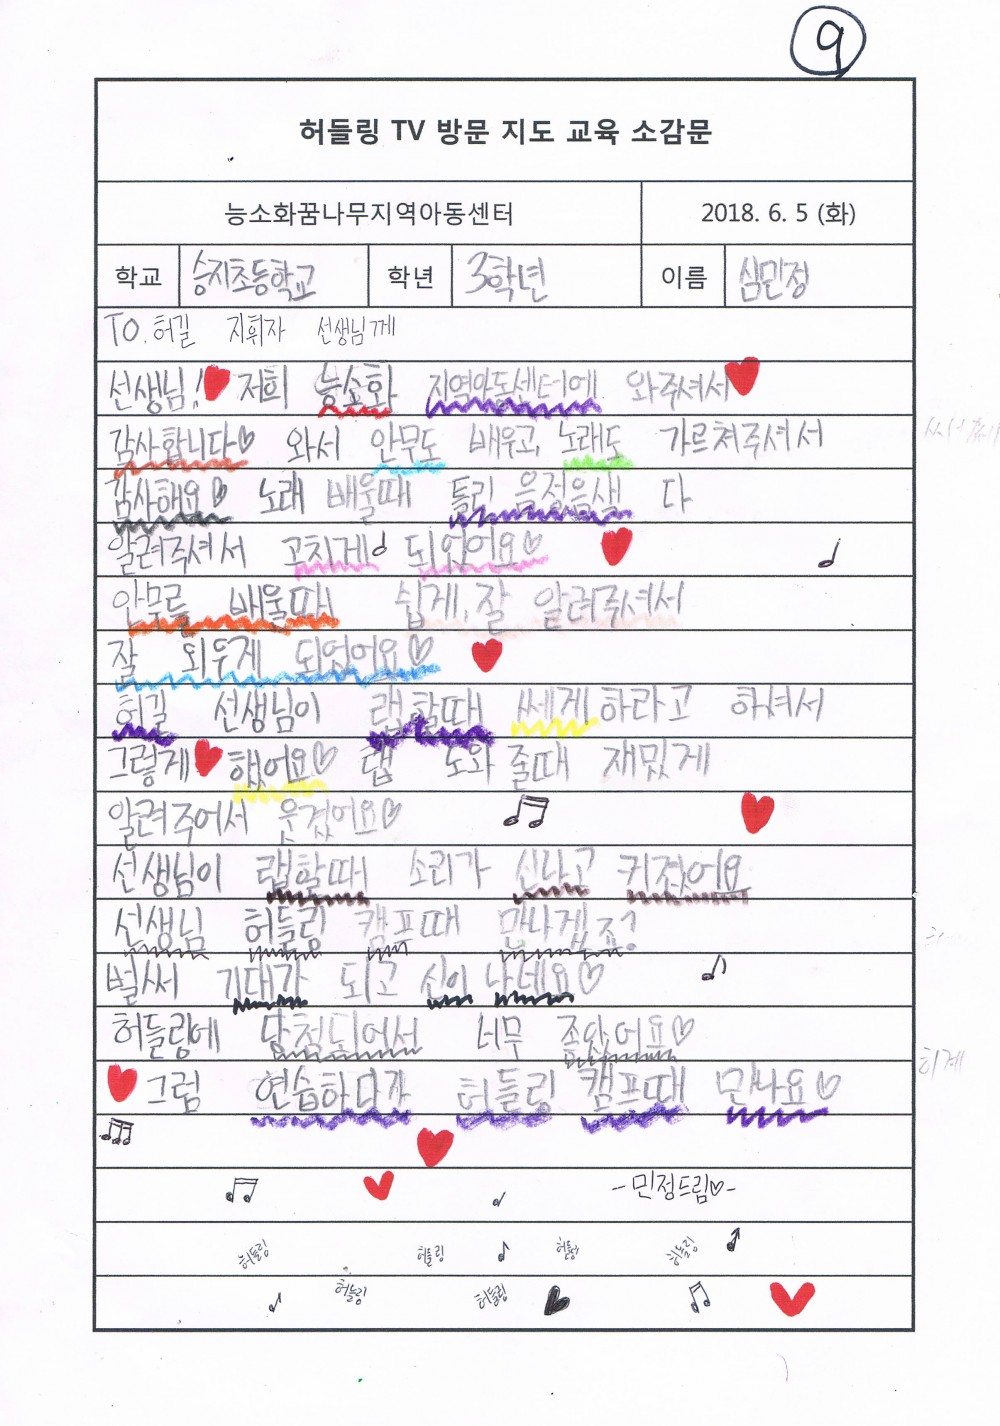 9
허들링 TV 방문 지도 교육 소감문
능소화꿈나무지역아동센터 2018. 6. 5 (화)
학교 승지초등학교 학년 3학년 이름 심민정
TO. 허길 지휘자 선생님께
선생님! 저희 능소화 지역아동센터에 와주셔서
감사합니다 와서 안무도 배우고, 노래도 가르쳐주셔서
감사해요 노래 배울때 틀린 음정음생 다
알려주셔서 고치게 되었어요
안무를 배울때 쉽게, 잘 알려주셔서
잘 외우게 되었어요
허길 선생님이 랩할때 쎄게 하라고 하셔서
그렇게 했어요 랩 도와 줄때 재밌게
알려주어서 웃겼어요
선생님이 랩할때 소리가 신나고 커졌어요
선생님 허들링 캠프때 만나겠죠?
벌써 기대가 되고 신이 나네요
허들링에 당첨되어서 너무 좋았어요
그럼 연습하다가 허들링 캠프때 만나요
-민정드림-
허들링 허들링 허들링 허들링
허들링 허들링